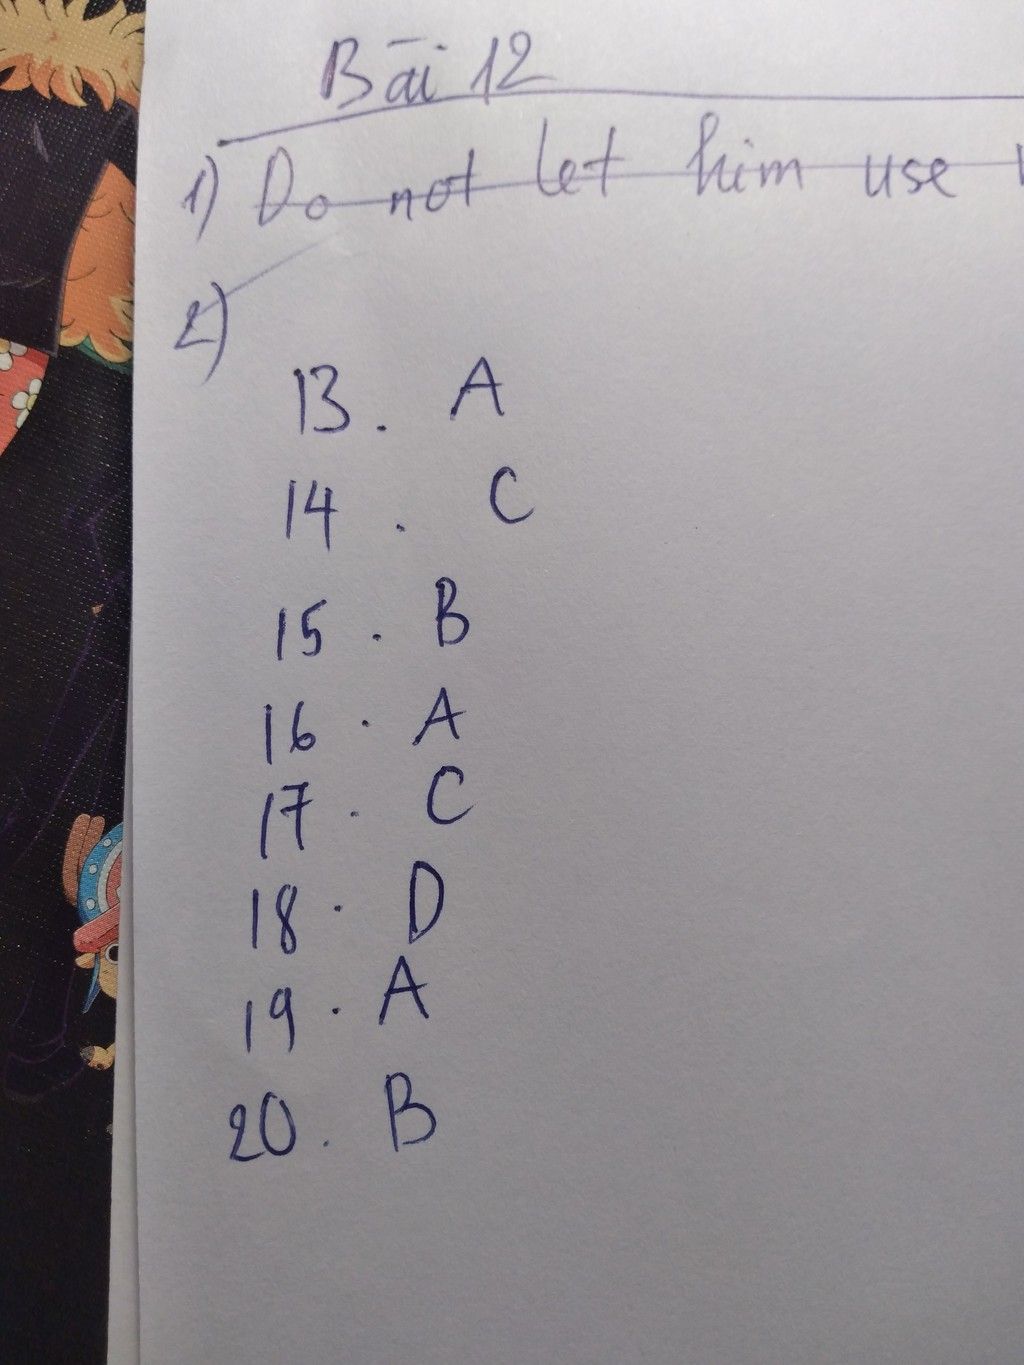 Bài 12
1) Do not let him use
2)
13. A
14. C
15. B
16. A
17. C
18. D
19. A
20. B